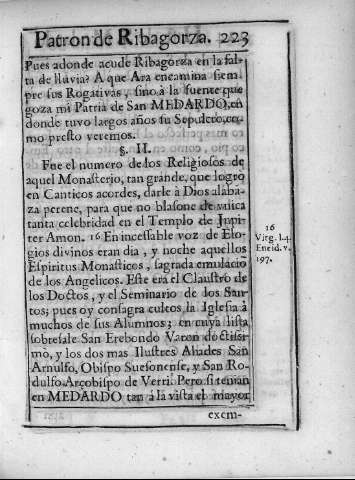 Patron de Ribagorza. 223
Pues adonde acude Ribagorza en la fal-
ta de lluvia? A que Ara encamina siem
pre sus Rogativas, sino à la fuente que
goza mi Patria de San MEDARDO, en
donde tuvo largos años su Sepulcro, co-
mo presto veremos.
§. II.
Fue el numero de los Religiosos de
aquel Monasterio, tan grande, que logrò
en Canticos acordes, darle à Dios alaba-
za perene, para que no blasone de vnica
tanta celebridad en el Templo de Jupi-
ter Amon. 16 En incessable voz de Elo-
gios divinos eran dia, y noche aquellos
Espiritus Monasticos, sagrada emulacio
de los Angelicos. Este era el Claustro de
los Doctos, y el Seminario de los San-
tos; pues oy consagra cultos la Iglesia à
muchos de sus Alumnos; en cuya lista
sobresale San Erebondo Varon doctissi-
mo, y los dos mas Ilustres Aliades San
Arnulfo, Obispo Suesonense, y San Ro-
dulfo Arçobispo de Verri. Pero si tenian
en MEDARDO tan à la vista el mayor
excm-
16
Virg. l.4.
Eneid. v.
197.